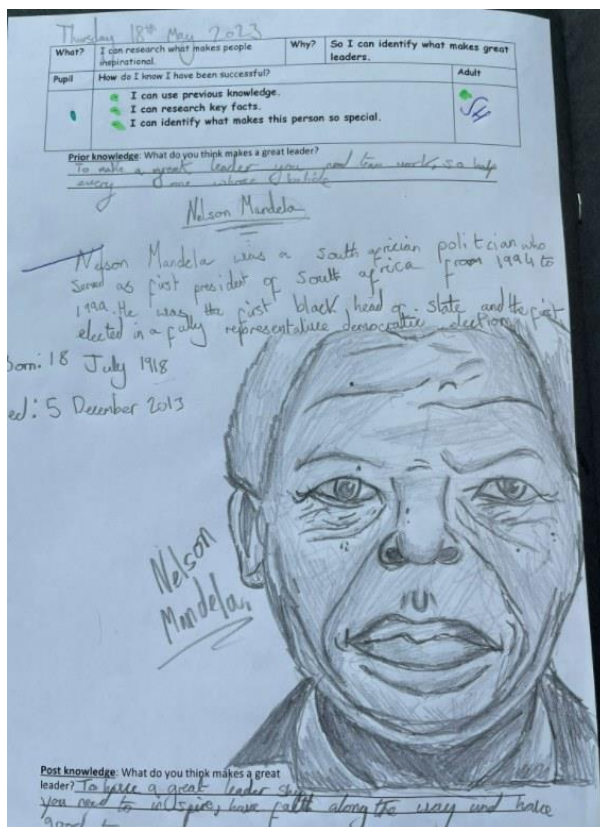 Thursday 18th May 2023
What? I can research what makes people inspirational. Why? So I can identify what makes great leaders.
Pupil How do I know I have been successful? Adult
I can use previous knowledge.
I can research key facts.
I can identify what makes this person so special.
Prior knowledge: What do you think makes a great leader?
To make a great leader you need team work, so help
every one
Nelson Mandela
Nelson Mandela was a South africian politcian who
served as first president of South africa from 1994 to
1999. He was the first black head of state and the first
elected in a fully representative democratic election
Born: 18 July 1918
ed: 5 December 2013
Nelson
Mandela.
Post knowledge: What do you think makes a great
leader? To have a great leader
you need to inspire, have faith along the way and have
good